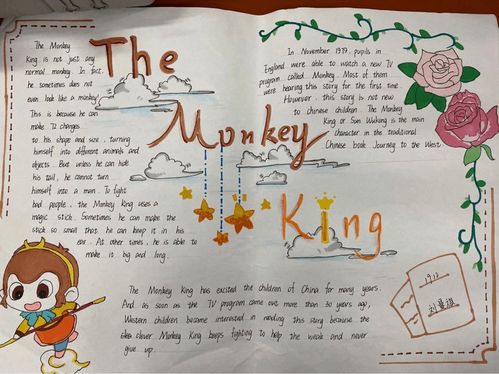 The
Monkey
King
The Monkey
King is not just any
normal monkey. In fact,
he sometimes does not
even look like a monkey!
This is because he can
make 72 changes
to his shape and size, turning
himself into different animals and
objects. But unless he can hide
his tail, he cannot turn
himself into a man. To fight
bad people, the Monkey King uses a
magic stick. Sometimes he can make the
stick so small that he can keep it in his
ear. At other times, he is able to
make it big and long.
In November 1979, pupils in
England were able to watch a new TV
program, called Monkey. Most of them
were hearing this story for the first time.
However, this story is not new
to chinese children. The Monkey
King or Sun Wukong is the main
character in the traditional
Chinese book Journey to the West.
The Monkey King has excited the children of China for many years.
And as soon as the TV program came out more than 30 years ago,
Western children became interested in reading this story because the
clever Monkey King keeps fighting to help the weak and never
give up.
1913